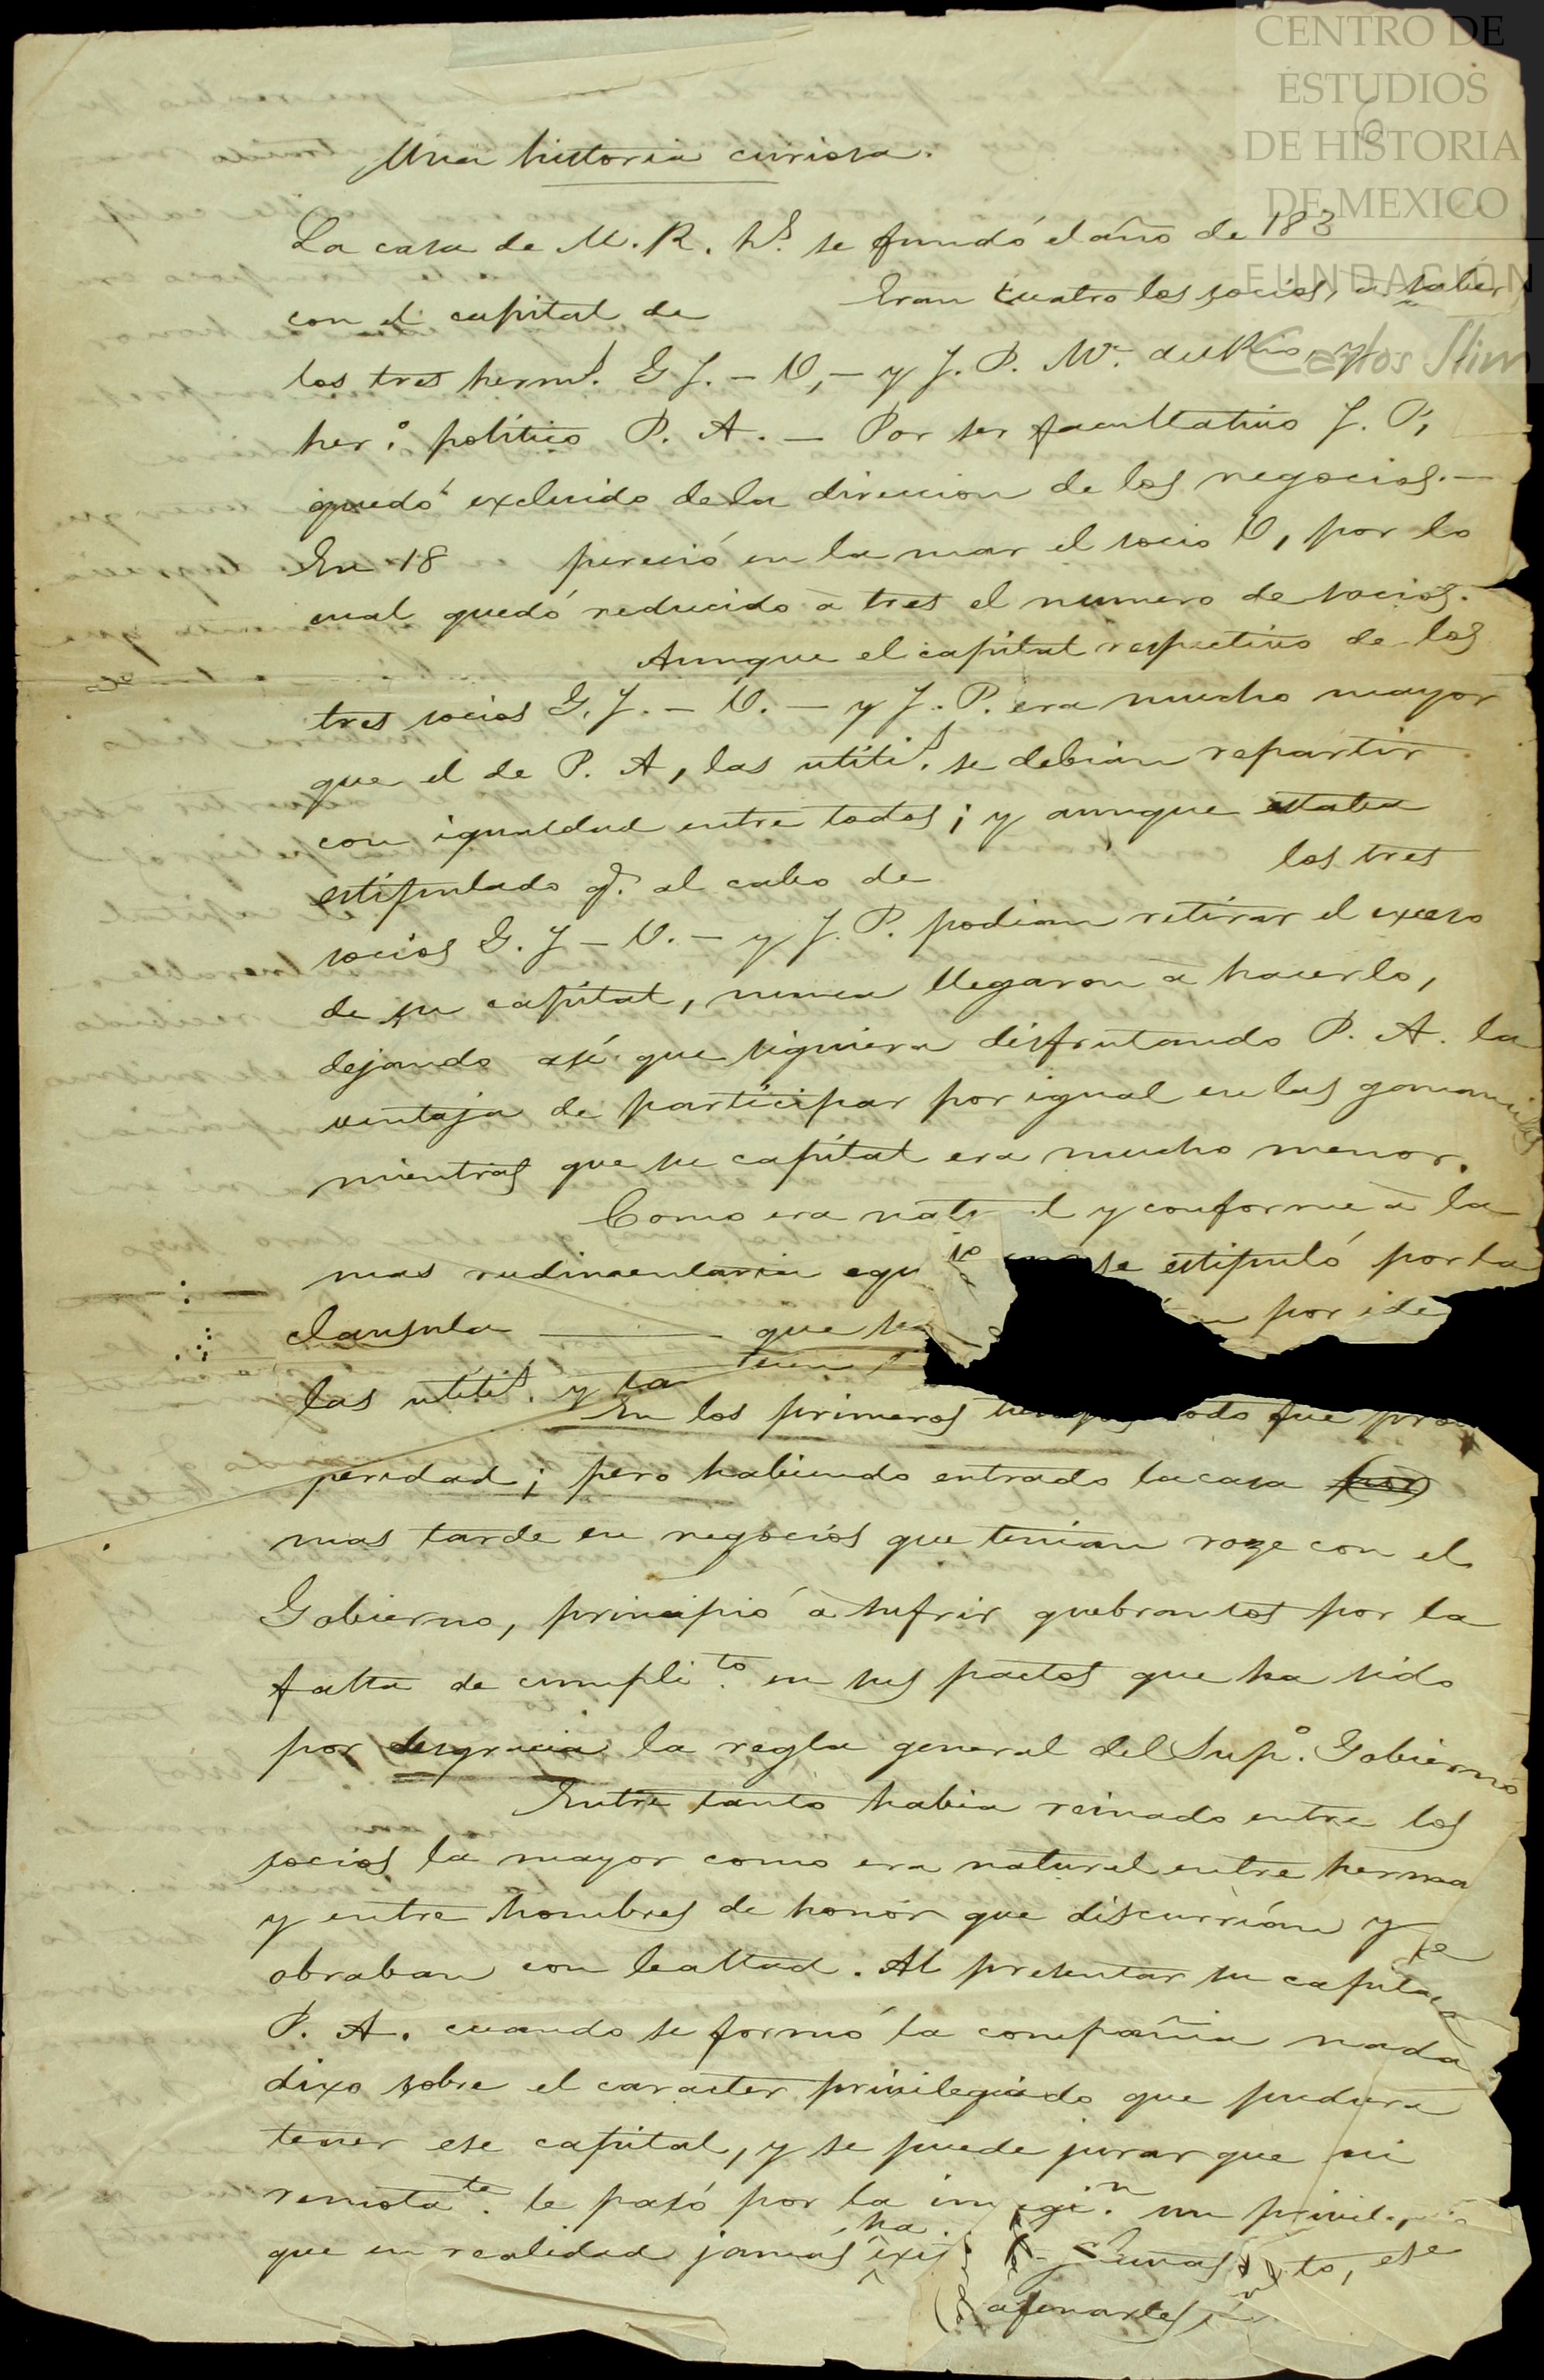 CENTRO DE
ESTUDIOS
DE HISTORIA
DE MEXICO
FUNDACIÓN
Carlos Slim
6
Una historia curiosa.
La casa de M. R. hs. se fundó el año de 183
con el capital de Eran cuatro los socios, a saber
los tres herms. G J. – V, – y J. P. Mz. del Rio, y
her.o politico P. A. – Por ser facultativo J. P,
quedó excluido de la direccion de los negocios. –
En 18 pereció en la mar el socio V, por lo
cual quedó reducido à tres el numero de socios.
Aunque el capital respectivo de los
tres socios G. J. – V. – y J. P. era mucho mayor
que el de P. A, las utilis. se debian repartir
con igualdad entre todos; y aunque estaba
estipulado q.e al cabo de los tres
socios G. J – V. – y J. P. podian retirar el exceso
de su capital, nunca llegaron à hacerlo,
dejando asi que siguiera disfrutando P. A. la
ventaja de participar por igual en las ganancias
mientras que su capital era mucho menor.
Como era nat l y conforme à la
mas rudimentaria equ se estipuló por la
clausula que se por
las utilis. y tan
En los primeros todo fue pros
peridad; pero habiendo entrado la casa por
mas tarde en negocios que tenian roze con el
Gobierno, principió à sufrir quebrantos por la
falta de cumpli.to en sus pactos que ha sido
por desgracia la regla general del Sup.o Gobierno
Entre tanto habia reinado entre los
socios la mayor como era natural entre herma
y entre hombres de honor que discurrian y
obraban con lealtad. Al presentar su capital
P. A. cuando se formó la compañia nada
dixo sobre el caracter privilegiado que pudiera
tener ese capital, y se puede jurar que ni
remota.te le pasó por la imagi.n un privilegio
que en realidad jamas ha exis to, ese